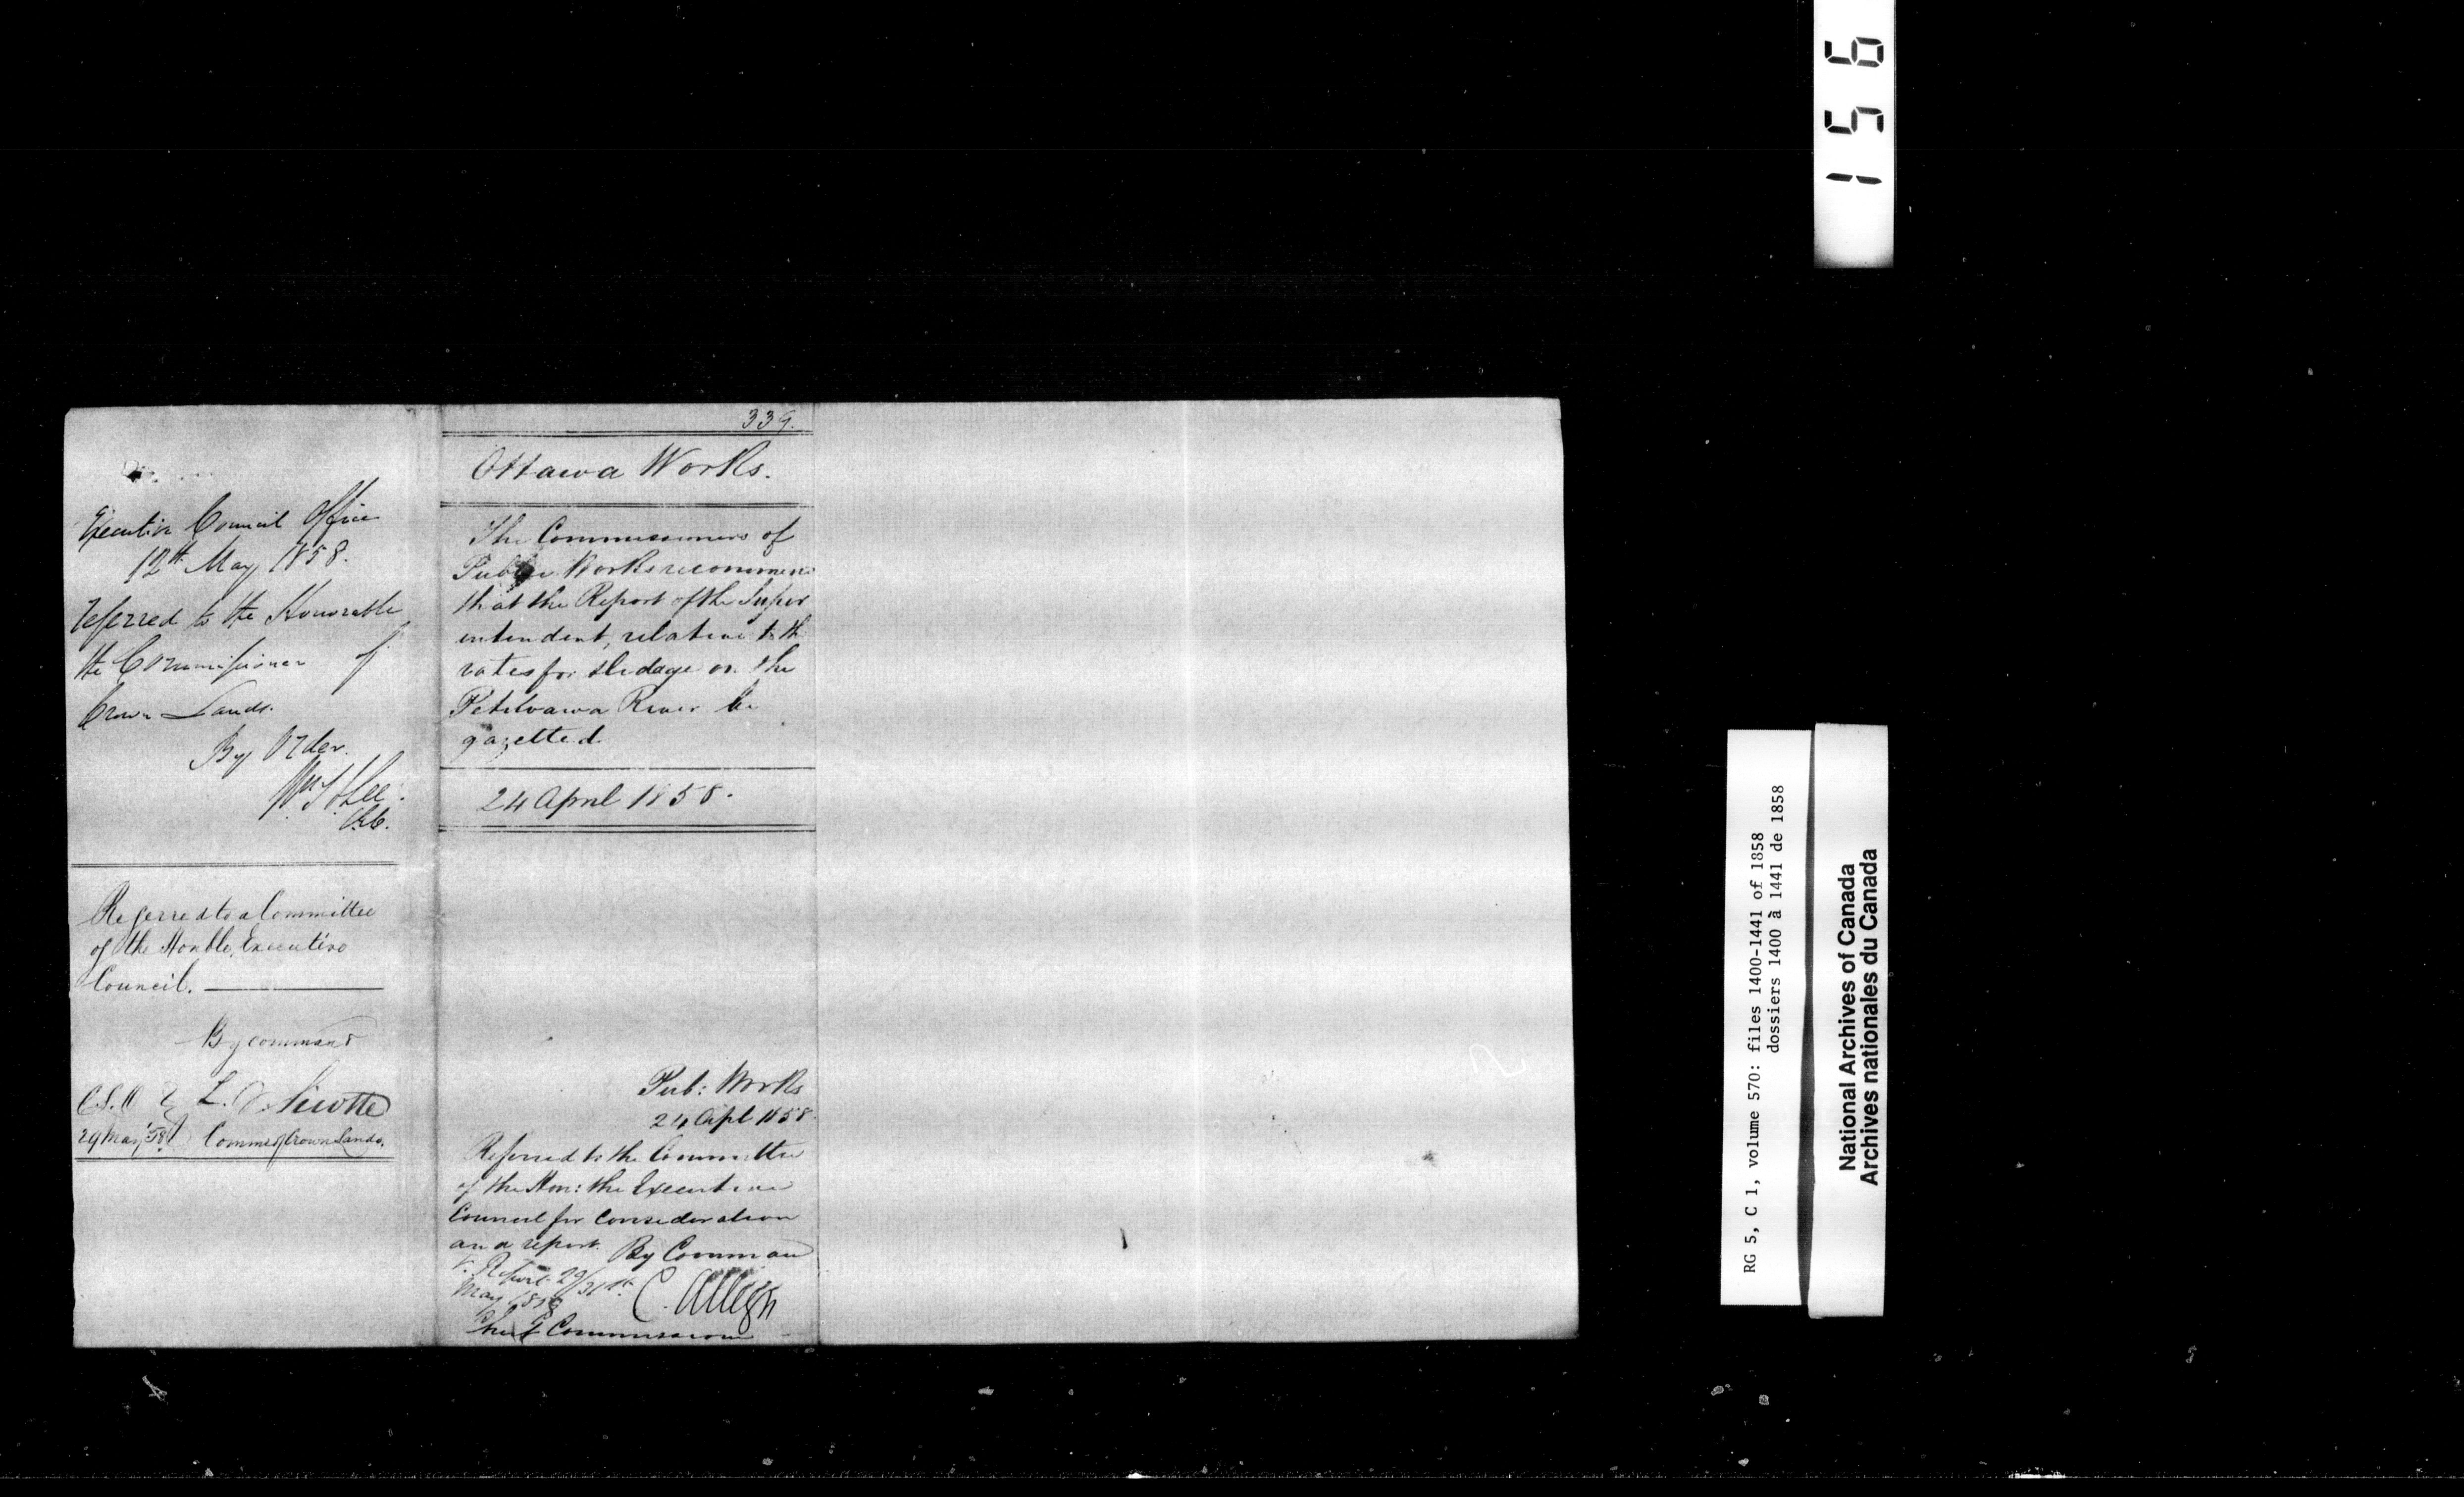 Executive Council Office
12th May 1858.
Referred to the Honorable
the Commissioner of
Crown Lands.
By Order.
Wm H Lee
Referred to a Committee
of the Honble. Executive
Council.
By command
L. V. Sicotte
29 May '58 Commr of Crown Lands.
339.
Ottawa Works.
The Commissioners of
Public Works recommen
that the Report of the Super
intendent, relative to th
rates for slidage on the
Petewawa River be
gazetted.
24 April 1858.
Pub: Works
24 Apl 1858.
Referred to the Committee
of the Hon: the Executive
Council for consideration
and report. By Comman
V. Report 29/31st
May 1858
C. Alleyn
Chief Commissioner
156
RG 5, C 1, volume 570: files 1400-1441 of 1858
dossiers 1400 à 1441 de 1858
National Archives of Canada
Archives nationales du Canada